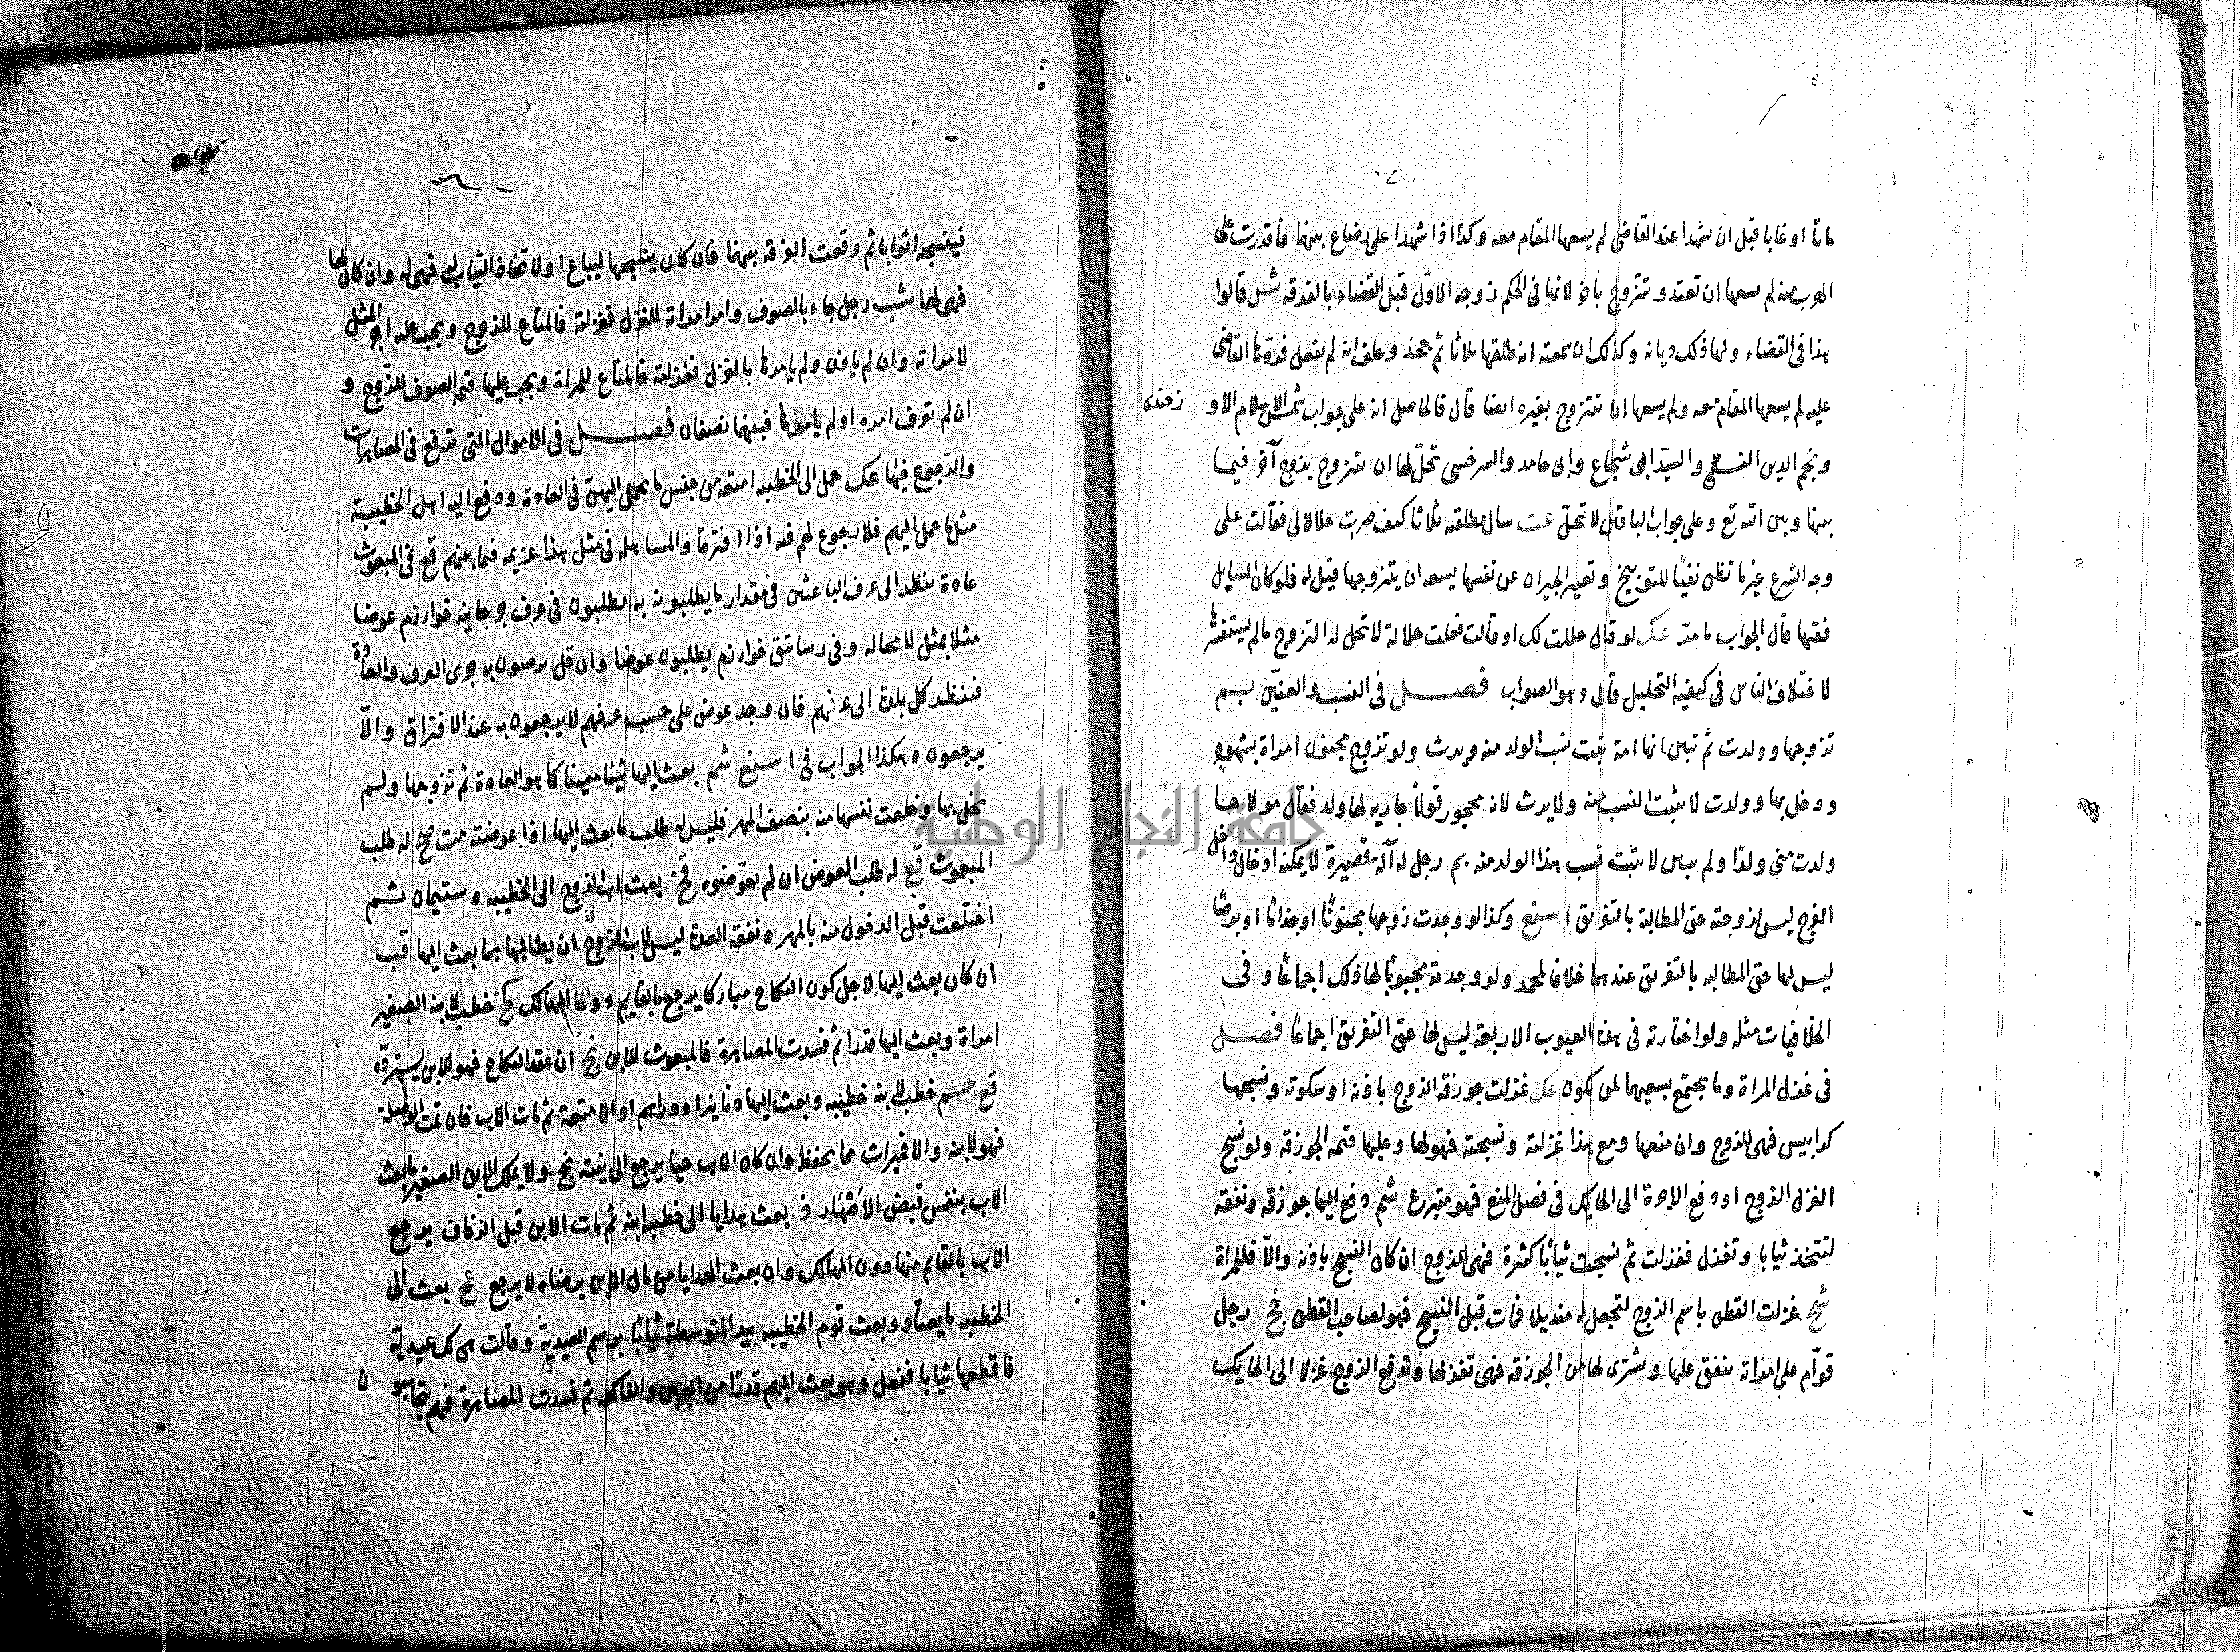 ماتا او غابا قبل ان شهدا عند القاضي لم يسعها المقام معه وكذا اذا شهدا على رضاع بينهما فان قدرت على
الهرب منه لم يسعها ان تعتد وتتزوج باخر لانها في الحكم زوجه الاول قبل القضاء بالفرقه قالوا
هذا في القضاء ولها ذلك ديانه وكذلك ان سمعته انه طلقها ثلاثا ثم جحد وحلف انه لم يفعل فردها القاضي
عليه لم يسعها المقام معه ولم يسعها ان تتزوج بغيره ايضا قال فالحاصل انه على جواب شمس الاسلام الاوزجندى
ونجم الدين النسفي والسيد ابى شجاع وابى حامد والسرخسى تحل لها ان تتزوج بزوج آخر فيما
بينها وبين الله تع وعلى جواب الباقين لا تحل عت سال مطلقته ثلاثا كيف صرت حلالا لى فقالت على
وجه الشرع غير ما تظن نفيا للتوبيخ وتعيير الجيران عن نفسها يسعه ان يتزوجها قيل له فلو كان السايل
فقيها قال الجواب ما مر عك لو قال حللت لك او قالت فعلت حلالة لا تحل له التزوج مالم يستفسر
لاختلاف الناس فى كيفية التحليل قال وهو الصواب فصل فى النسب والعنين بم
تزوجها وولدت ثم تبين انها امة ثبت نسب الولد منه ويرث ولو تزوج مجنون امراة بشهود
ودخل بها وولدت لا يثبت النسب منه ولا يرث لانه محجور قولا جاريه لها ولد فقال مولاها
ولدت منى ولدا ولم يبين لا يثبت نسب هذا الولد منه بم رجل له آلة قصيرة لا يمكنه ادخال داخل
الفرج ليس لزوجته حق المطالبة بالتفريق اسنع وكذا لو وجدت زوجها مجنونا او جذاما او برصا
ليس لها حق المطالبه بالتفريق عندهما خلافا لمحمد ولو وجدته مجبوبا لها ذلك اجماعا وفى
الخلافيات مثله ولو اختارته فى هذه العيوب الاربعة ليس لها حق التفريق اجماعا فصل
فى غزل المراة وما يجتمع بسعيهما لمن يكون عك غزلت جوزقة الزوج باذنه او سكوته ونسجها
كرابيس فهى للزوج وان منعها ومع هذا غزلته ونسجته فهو لها وعليها قيمة الجوزقه ولو نسج
الغزل الزوج او دفع الاجرة الى الحايك فى فصل المنع فهو متبرع شم دفع اليها جوزقه ونفقه
لتتخذ ثيابا وتغزل فغزلت ثم نسجت ثيابا كثرة فهى للزوج ان كان النسج باذنه والا فللمراة
شح غزلت القطن باسم الزوج لتجعل له منديلا فمات قبل النسج فهو لصاحب القطن نح رجل
قوام على امراته ينفق عليها ويشترى لها من الجوزقه فهى تغزلها وتدفع الزوج غزلا الى الحايك
فينسجه اثوابا ثم وقعت الفرقة بينهما فان كان ينسجها ليباع او لاتخاذ الثياب له فهى له وان كان لها
فهى لها شب رجل جاء بالصوف وامر امراته للغزل فغزلته فالمتاع للزوج ويجب عليه اجر المثل
لامراته وان لم ياذن ولم يامرها بالغزل فغزلته فالمتاع للمراة ويجب عليها قيمة الصوف للزوج و
ان لم تعرف امره او لم يامرها فبينهما نصفان فصل فى الاموال التى تدفع فى المصاهرات
والرجوع فيها عك حمل الى الخطيبه امتعه من جنس ما يحمل اليهن فى العادة ودفع اليه اهل الخطيبة
مثل ما حمل اليهم فلا رجوع لهم فيه اذا افترقا والمساهله فى مثل هذا عزيمه فيما بينهم قع فى المبعوث
عادة ينظر الى عرف الباعثين فى مقدار ما يطلبون به يطلبون فى عرف جرجانية خوارزم عوضا
مثلا بمثل لا محاله وفى رساتيق خوارزم يطلبون عوضا وان قل يرضون به جرى العرف والعادة
فننظر كل بلدة الى عرفهم فان وجد عوض على حسب عرفهم لا يرجعون به عند الافتراق والا
يرجعون وهكذا الجواب فى اسنع شم بعث اليها شيئا معينا كما هو العادة ثم تزوجها ولم
يخل بها وخلعت نفسها منه بنصف المهر فليس له طلب ما بعث اليها اذا عوضته مت صح له طلب
المبعوث قع له طلب العوض ان لم يعوضوه قخ بعث اب الزوج الى الخطيبه وستيمان ثم
اختلعت قبل الدخول منه بالمهر ونفقه العدة ليس لاب الزوج ان يطالبها بما بعث اليها قب
ان كان بعث اليها لاجل كون النكاح مباركا يرجع بالقايم دون الهالك نح خطب لابنه الصغير
امراة وبعث اليها قدرا ثم فسدت المصاهرة فالمبعوث للابن نح ان عقد النكاح فهو للابن يسترده
قع حسم خطب لابنه خطيبه وبعث اليها دنانيرا ودراهم او الامتعة ثم مات الاب فان تمت الوصلة
فهو لابنه والاخيرات مما يحفظ وان كان الاب حيا يرجع الى نيته نح ولا يملك الابن الصغير ما بعث
الاب بنفس قبض الاصهار ف بعث هدايا الى خطيبه ابنه ثم مات الابن قبل الزفاف يرجع
الاب بالقايم منها دون الهالك وان بعث الهدايا من مال الابن برضاه لا يرجع نح بعث الى
الخطيبه وبعث قوم الخطيبه بيد المتوسطة ثيابا برسم العيدية وقالت هى لك عيدية
فاقطعها ثيابا ففعل وهو بعث اليهم قدرا من العين والفاكهه ثم فسدت المصاهرة فهم يتحاسبون
جامعة النجاح الوطنية